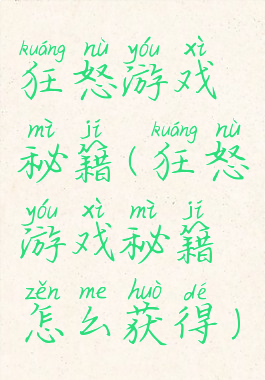 kuáng nù yóu xì
狂怒游戏
mì jí kuáng nù
秘籍(狂怒
yóu xì mì jí
游戏秘籍
zěn me huò dé
怎么获得)